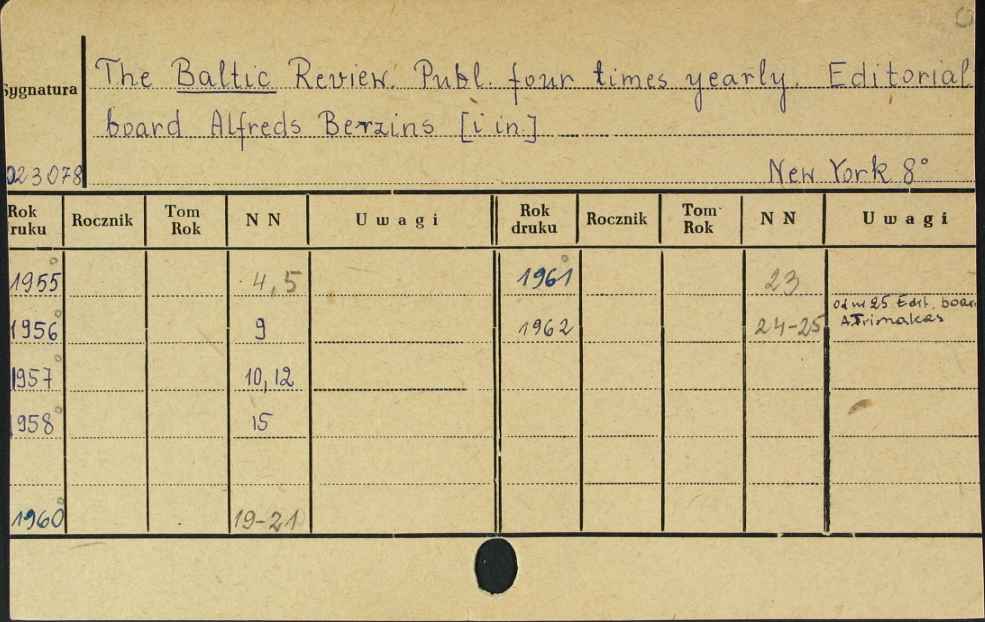 The Baltic Review. Publ. four times yearly. Editorial
Sygnatura
board Alfreds Berzins [i in.]
023078
New York 8°
Rok druku Rocznik Tom Rok N N Uwagi Rok druku Rocznik Tom Rok N N Uwagi
1955° 4, 5 1961° 23
1956° 9 1962 24-25 od nr 25 Edit. board A. Trimakas
1957° 10, 12
1958° 15
1960° 19-21